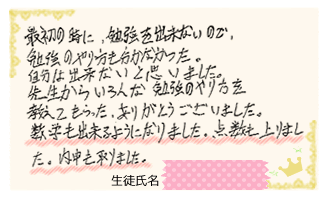 最初の時に、勉強を出来ないので、
勉強のやり方も分かなかった。
自分は出来ないと思いました。
先生からいろんな勉強のやり方を
教えてもらった、ありがとうございました。
数学も出来るようになりました。点数も上りまし
た。内申も取りました。
生徒氏名